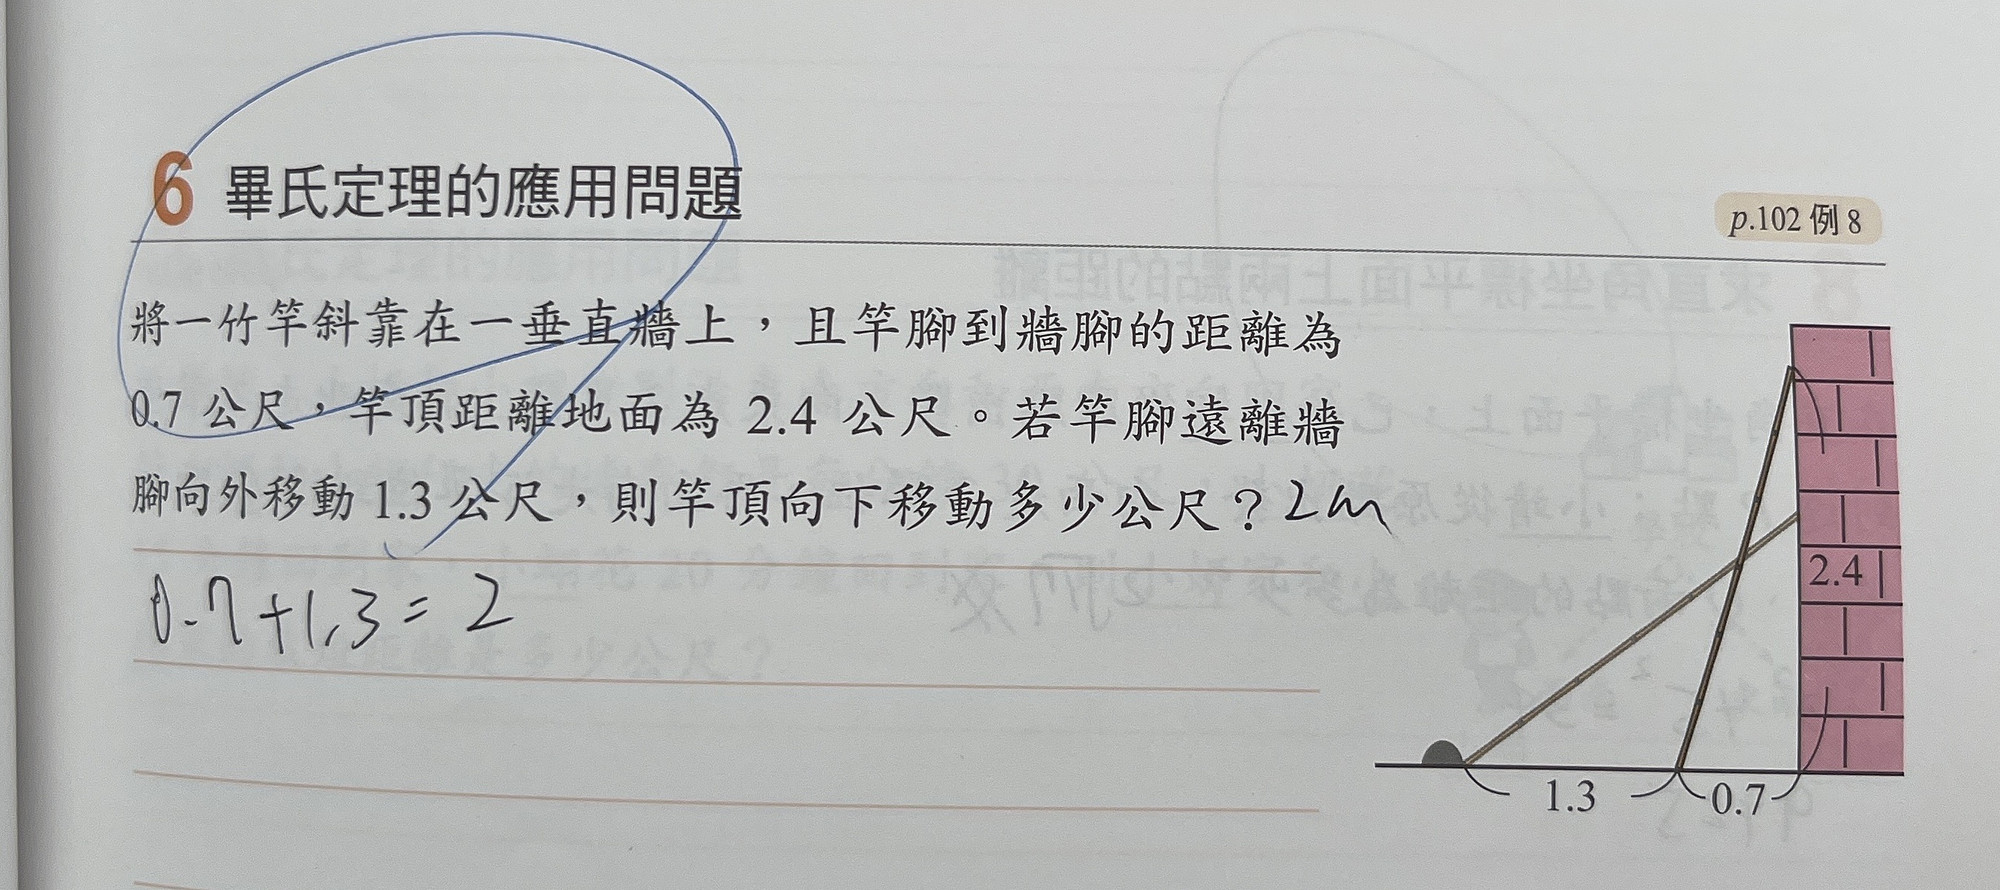 6 畢氏定理的應用問題
p.102 例 8
將一竹竿斜靠在一垂直牆上，且竿腳到牆腳的距離為
0.7 公尺，竿頂距離地面為 2.4 公尺。若竿腳遠離牆
腳向外移動 1.3 公尺，則竿頂向下移動多少公尺？2m
0.7+1.3=2
2.4
1.3
0.7